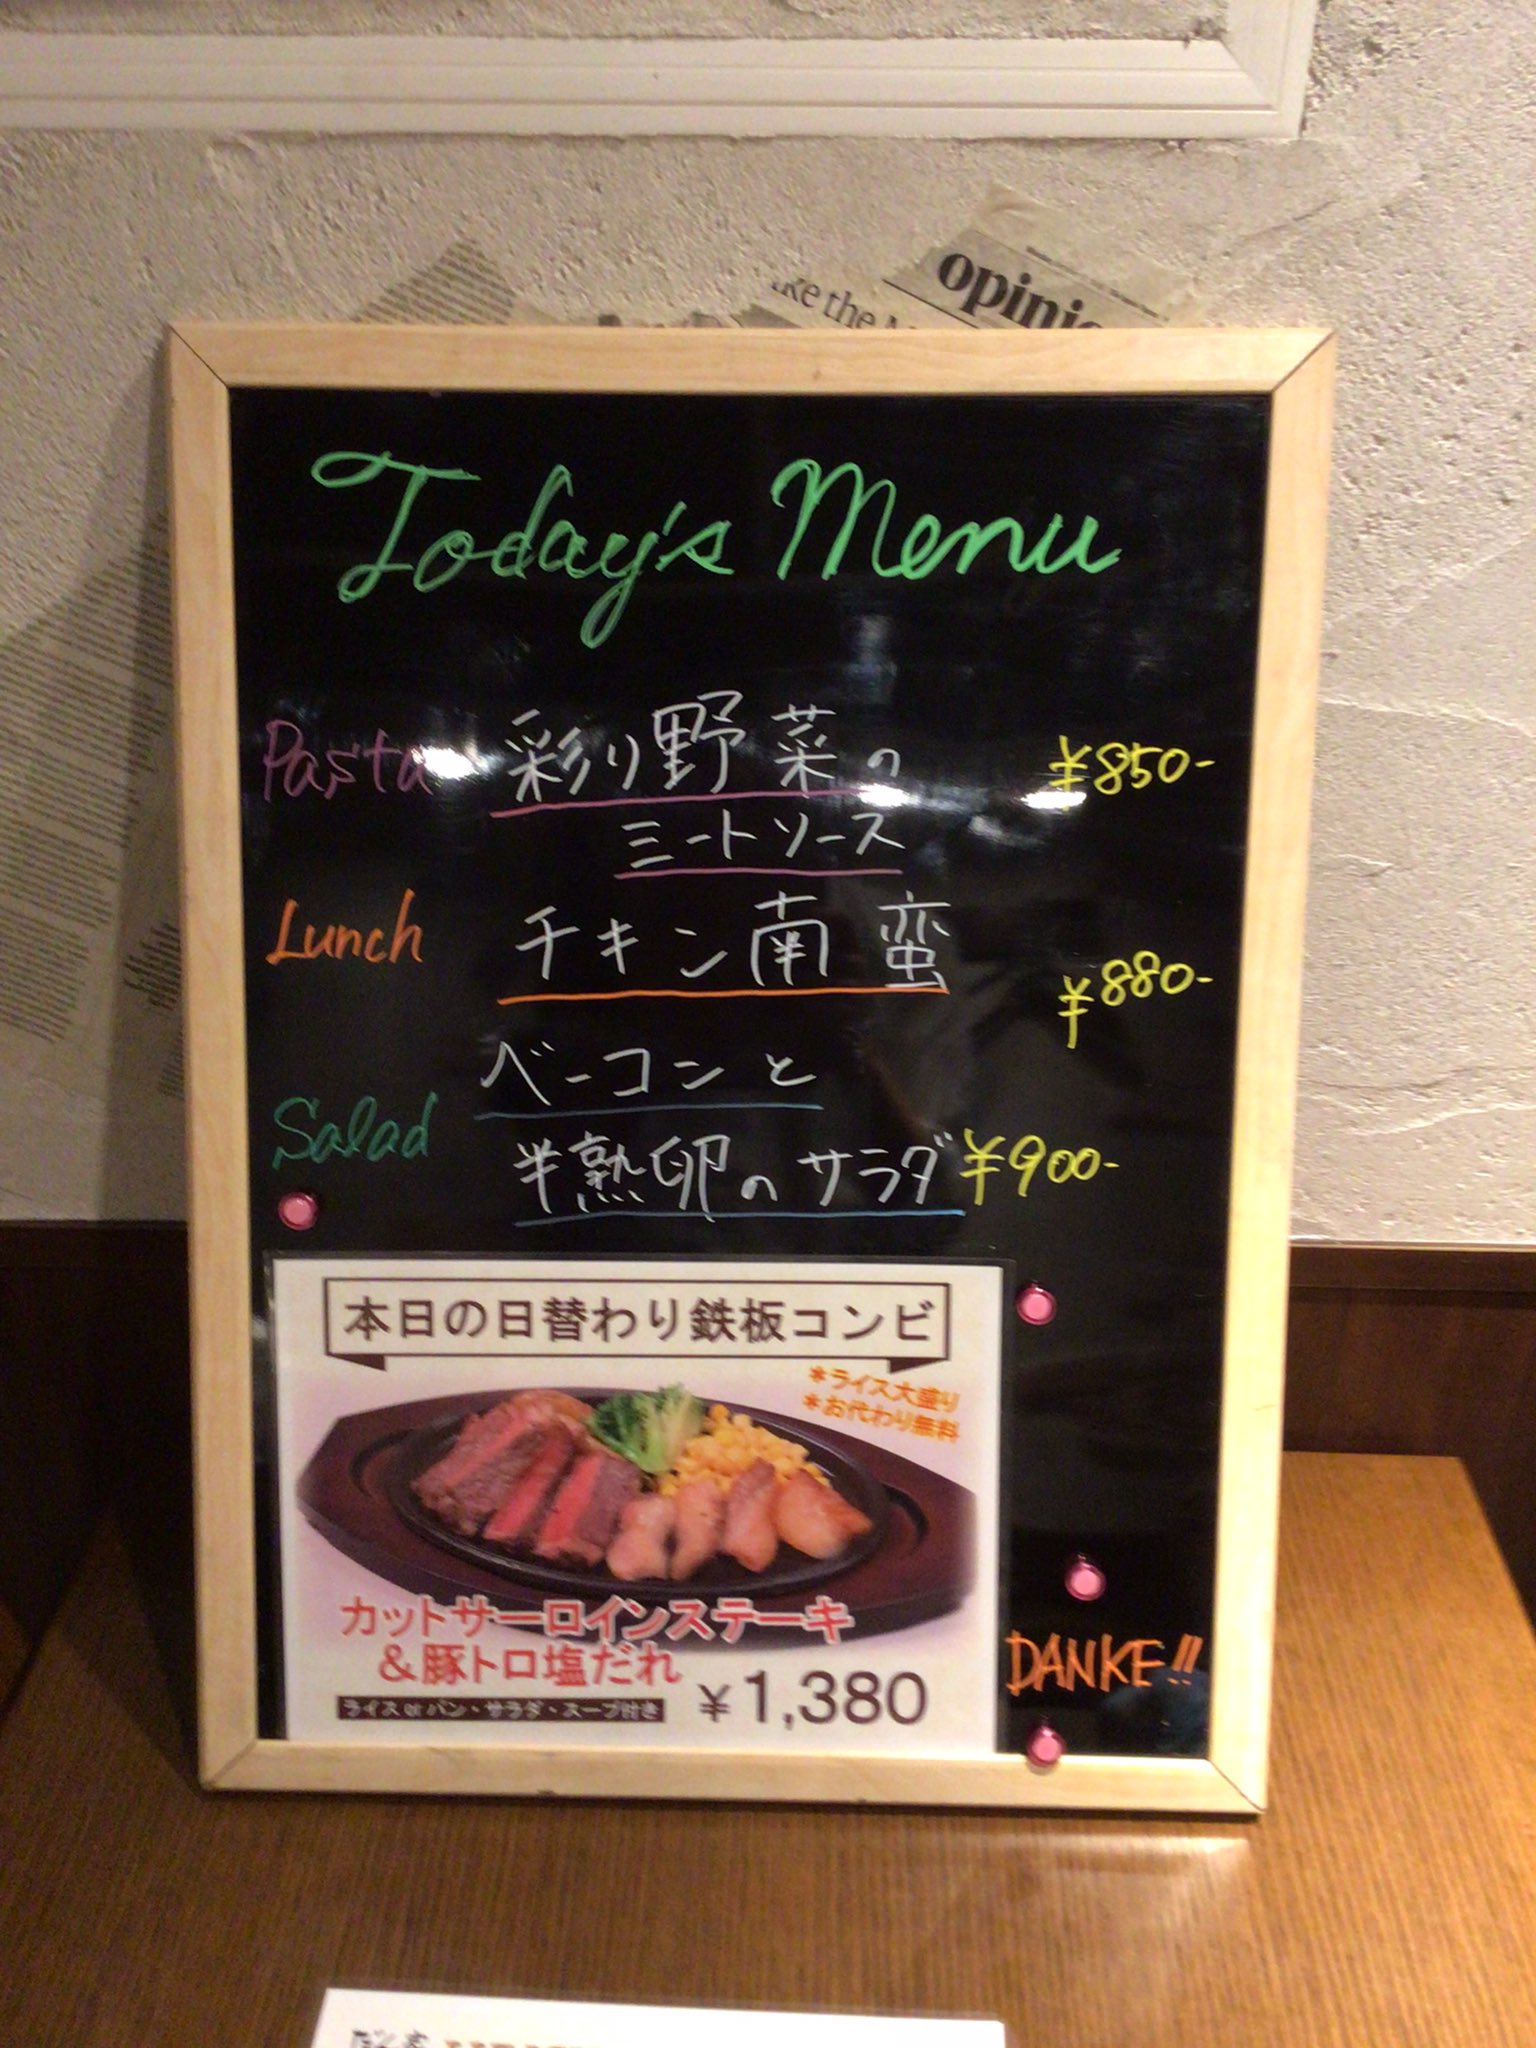 opinio
ke the
Today's Menu
Pasta 彩り野菜の ¥850-
ミートソース
Lunch チキン南蛮 ¥880-
ベーコンと
Salad 半熟卵のサラダ ¥900-
本日の日替わり鉄板コンビ
*ライス大盛り
*お代わり無料
カットサーロインステーキ
&豚トロ塩だれ
ライス or パン・サラダ・スープ付き
¥1,380
DANKE!!